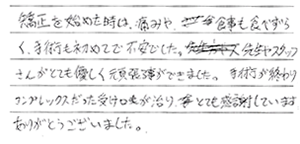 矯正を始めた時は、痛みや、食事も食べずら
く、手術も初めてで不安でした。先生やスタッフ
さんがとても優しく頑張る事ができました。手術が終わり
コンプレックスだった受け口が治り、とても感謝しています
ありがとうございました。